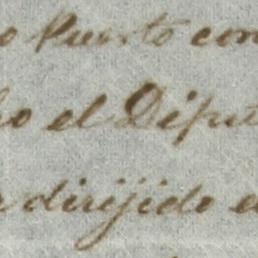 o Puerto con
ho el Diput
r dirijido e